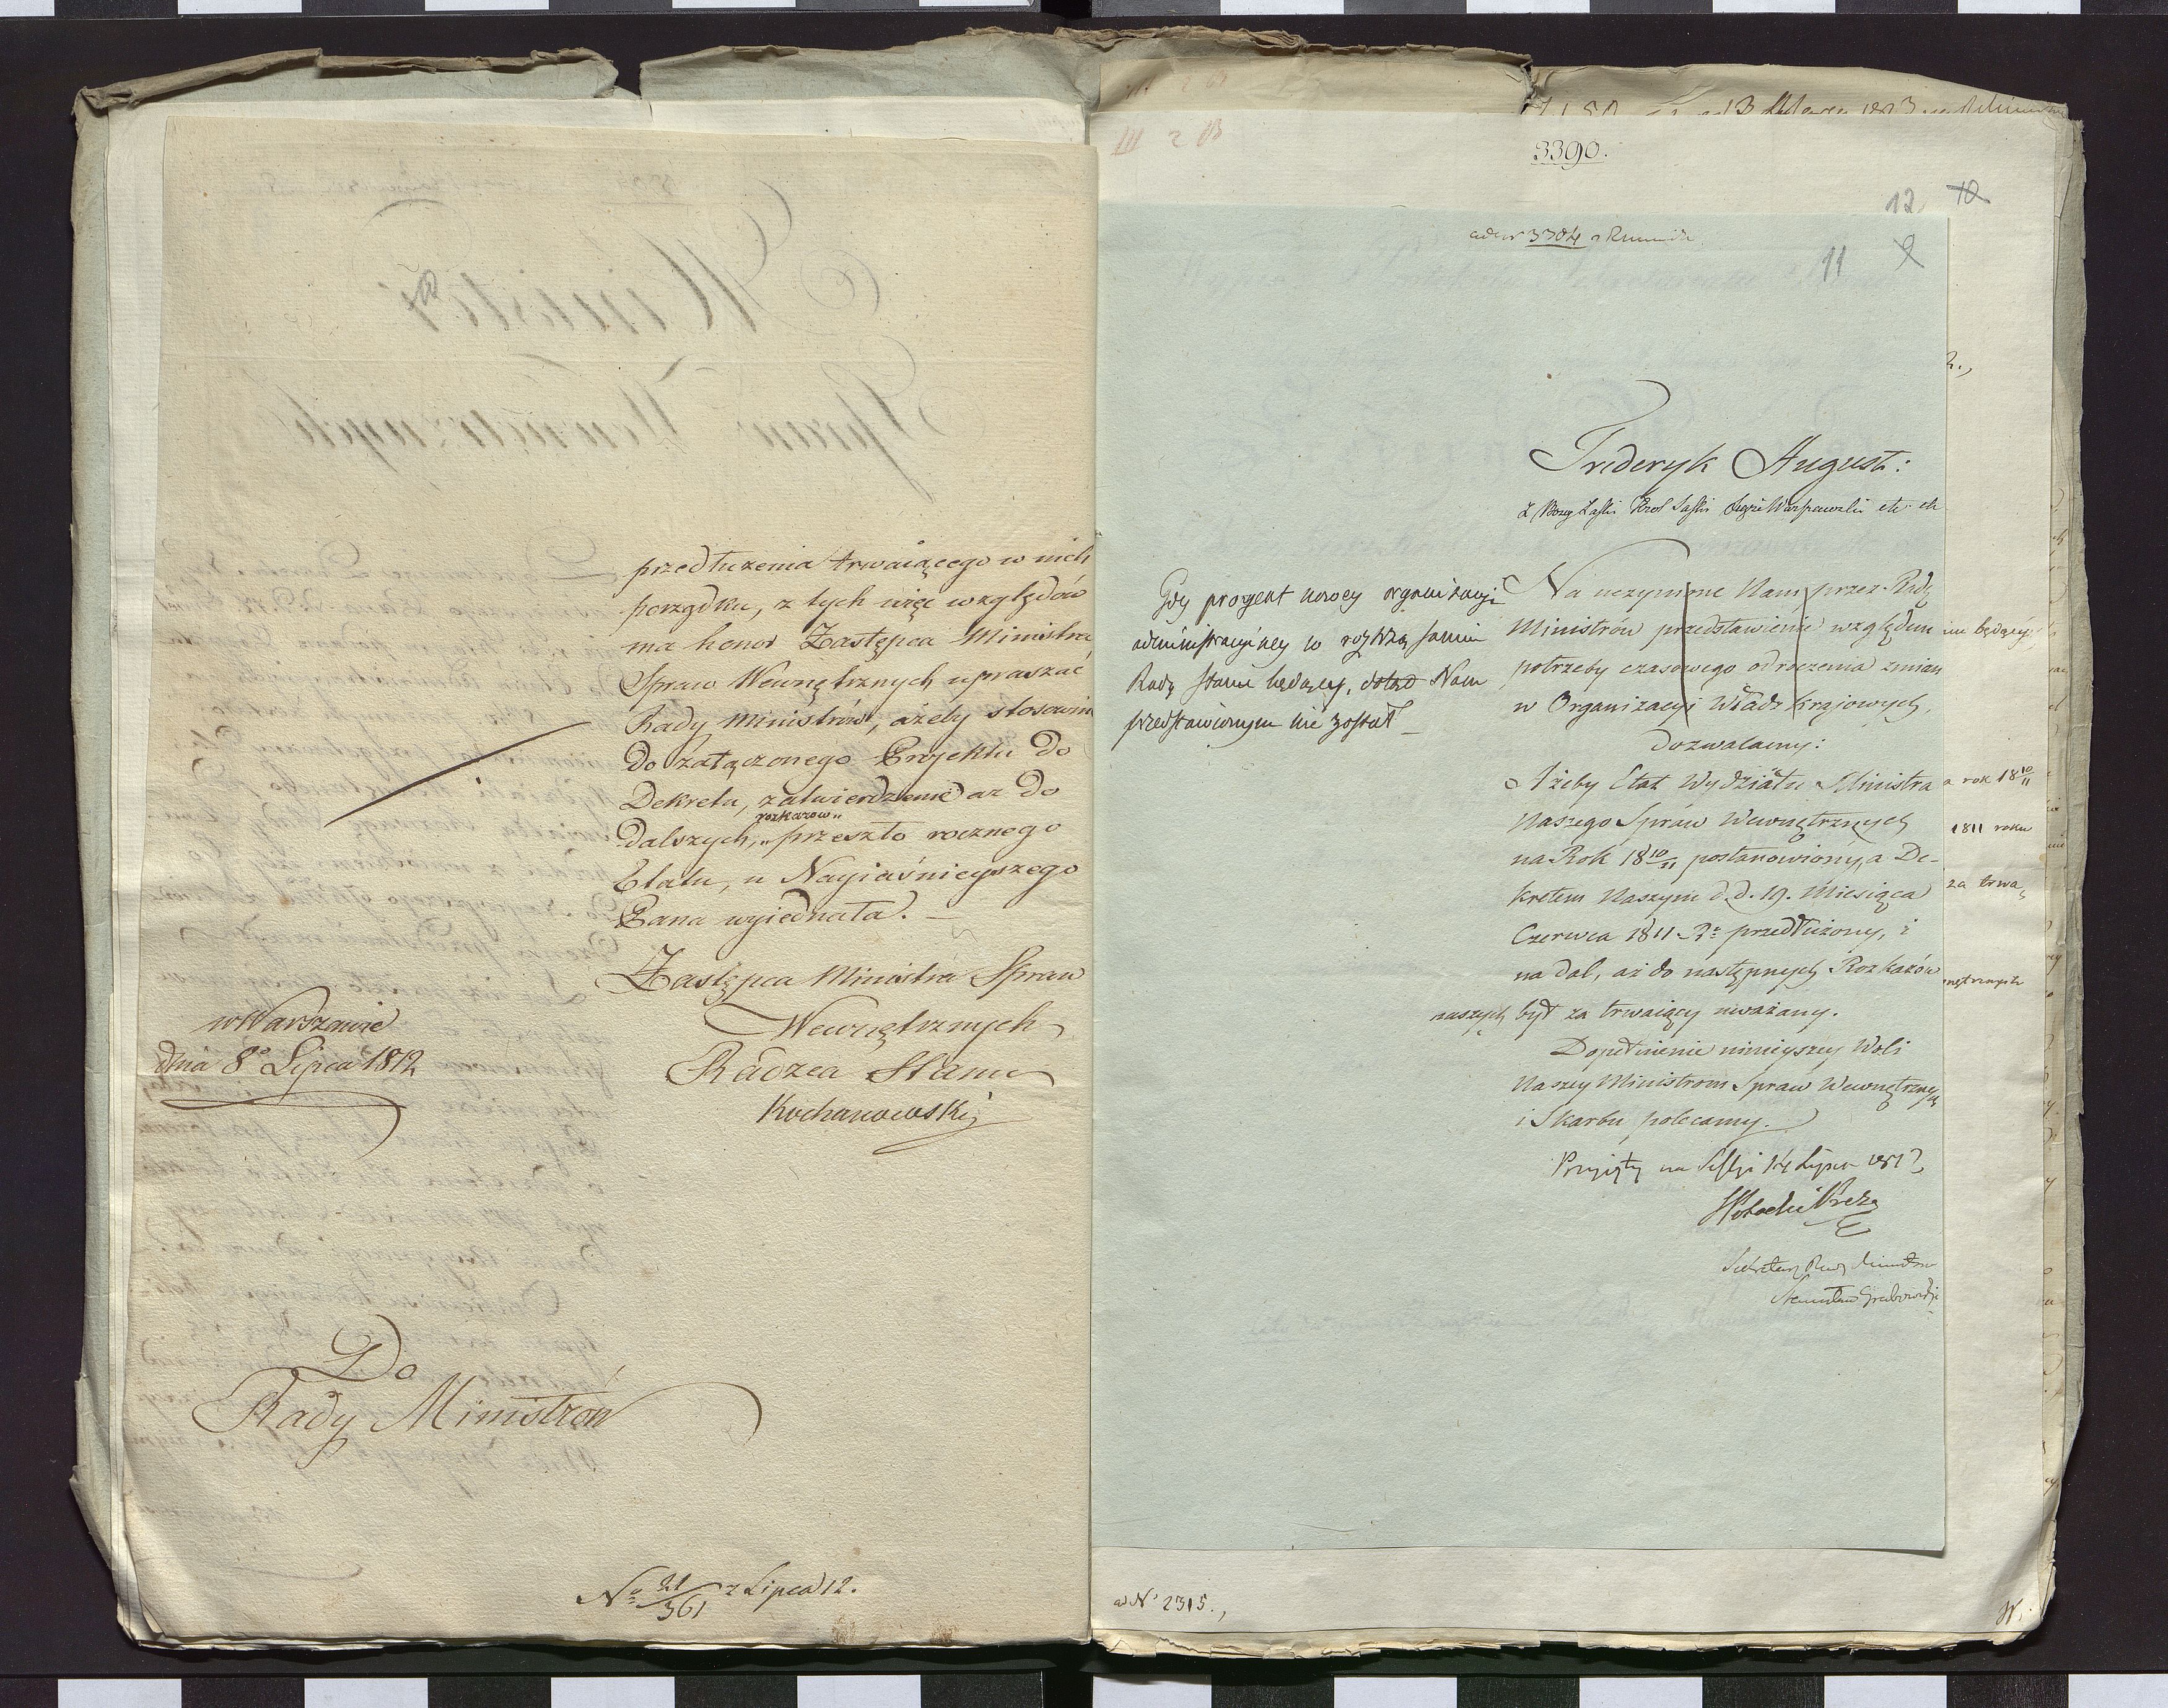 przedłużenia trwaiącego w nich
porządku, z tych więc względów
ma honor Zastępca Ministra
Spraw Wewnętrznych upraszać
Rady Ministrów, ażeby stosownie
do załączonego Projektu do
Dekretu, zatwierdzenie aż do
rozkazów
dalszych, przeszło rocznego
Etatu, u Nayiaśnieyszego
Pana wyiednała.
Zastępca Ministra Spraw
Wewnętrznych
Radzca Stanu
Kochanowski
w Warszawie
dnia 8° Lipca 1812
Do
Rady Ministrów
No 21/361 z Lipca 12.
3390.
12 10
ad Nr 3304
11
Frideryk August:
Z Bożey Łaski Krol Saski Xiąże Warszawski etc. etc
Gdy proiekt nowey organizacyi
administracyiney w roztrząsaniu
Rady Stanu będący, dotąd Nam
przedstawionym nie został
Na uczynione Nam przez Radę
Ministrów przedstawienie względem
potrzeby czasowego odroczenia zmian
w Organizacyi Władz Krajowych,
Dozwalamy:
Ażeby Etat Wydziału Ministra
Naszego Spraw Wewnętrznych
na Rok 18 10/11 postanowiony, a De-
kretem Naszym d. d. 19. Miesiąca
Czerwca 1811 Ro przedłużony, i
na dal, aż do następnych Rozkazów
naszych był za trwaiący uważany.
Dopełnienie ninieyszey Woli
Naszey Ministrom Spraw Wewnętrznych
i Skarbu polecamy.
Przyięty na Sessyi 14 Lipca 1812
Sekretarz Rady Ministrów
Stanisław Grabowski
im będący
a rok 18 10/11
1811 roku
za trwa
nętrznych
ad No 2315.,